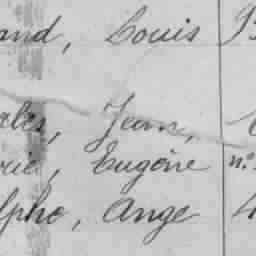 and, Louis
rles, Jean,
rie, Eugène n°
lphe, Ange 4